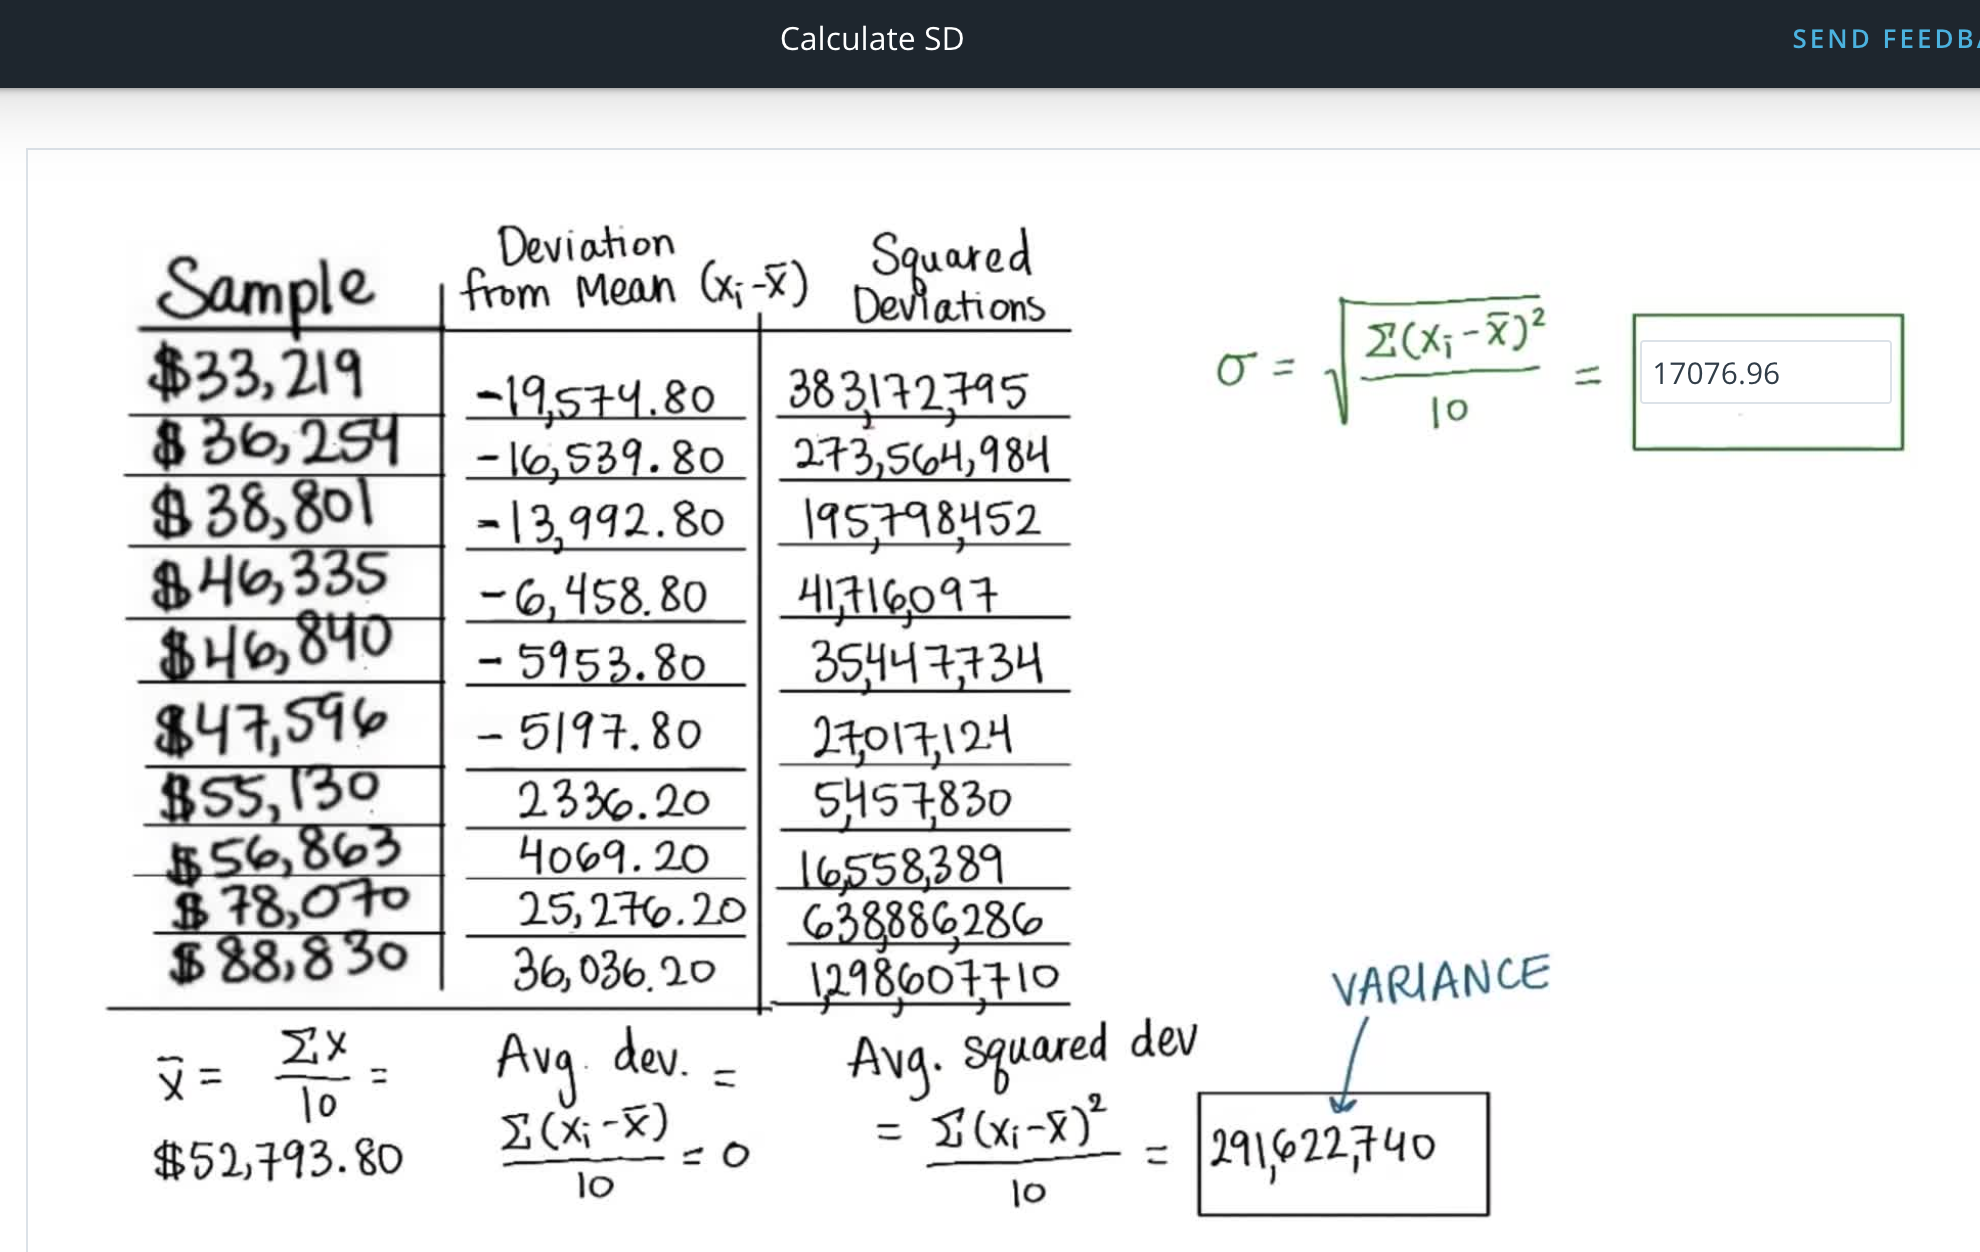 Calculate SD
SEND FEEDBA
Sample
Deviation
from Mean (xᵢ-x̄)
Squared
Deviations
$33,219 -19,574.80 383,172,795
$36,254 -16,539.80 273,564,984
$38,801 -13,992.80 195,798,452
$46,335 -6,458.80 41,716,097
$46,840 -5953.80 35,447,734
$47,596 -5197.80 27,017,124
$55,130 2336.20 5,457,830
$56,863 4069.20 16,558,389
$78,070 25,276.20 638,886,286
$88,830 36,036.20 1,298,607,710
x̄ = Σx / 10 =
$52,793.80
Avg. dev. =
Σ(xᵢ-x̄) / 10 = 0
Avg. squared dev
= Σ(xᵢ-x̄)² / 10 = 291,622,740
VARIANCE
σ = √(Σ(xᵢ-x̄)² / 10) = 17076.96